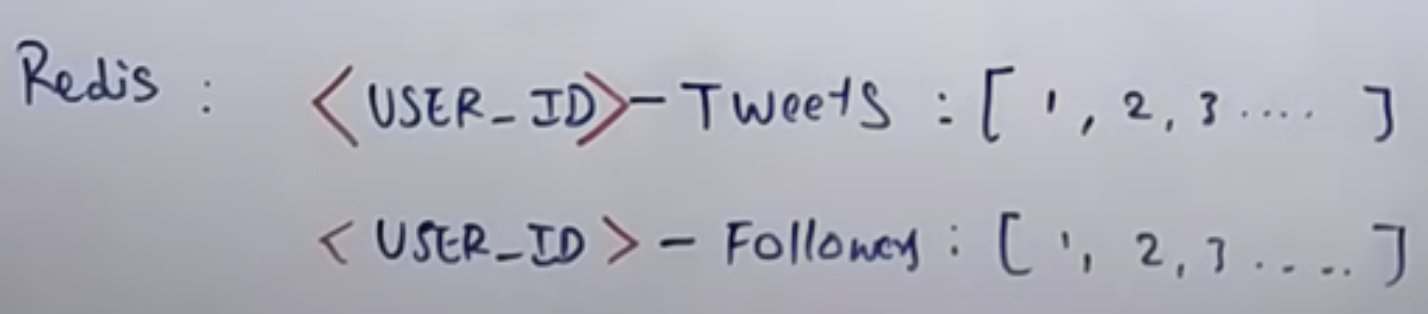 Redis : <USER_ID>-Tweets : [ 1, 2, 3 .... ]
<USER_ID> - Followers : [ 1, 2, 3 ..... ]